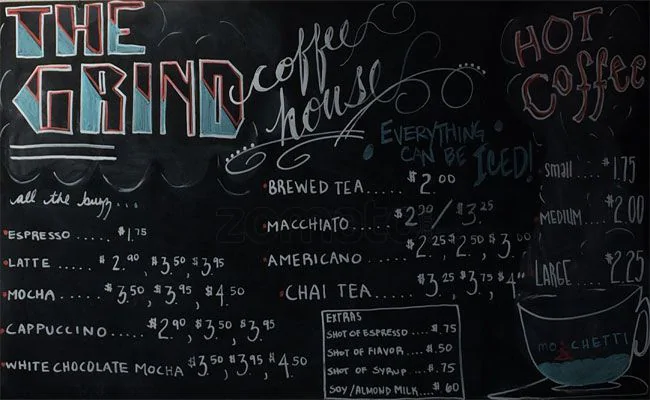 THE
GRIND
coffee
house
EVERYTHING
CAN BE ICED!
HOT
Coffee
small .... $1.75
MEDIUM .... $2.00
LARGE .... $2.25
all the buzz...
ESPRESSO ..... $1.75
LATTE ..... $2.90, $3.50, $3.95
MOCHA ..... $3.50, $3.95, $4.50
CAPPUCCINO ..... $2.90, $3.50, $3.95
WHITE CHOCOLATE MOCHA $3.50, $3.95, $4.50
BREWED TEA ..... $2.00
MACCHIATO ..... $2.90 / $3.25
AMERICANO ..... $2.25, $2.50, $3.00
CHAI TEA ..... $3.25, $3.75,
EXTRAS
SHOT OF ESPRESSO .... $.75
SHOT OF FLAVOR .... $.50
SHOT OF SYRUP ... $.75
SOY/ALMOND MILK .... $.60
zomato